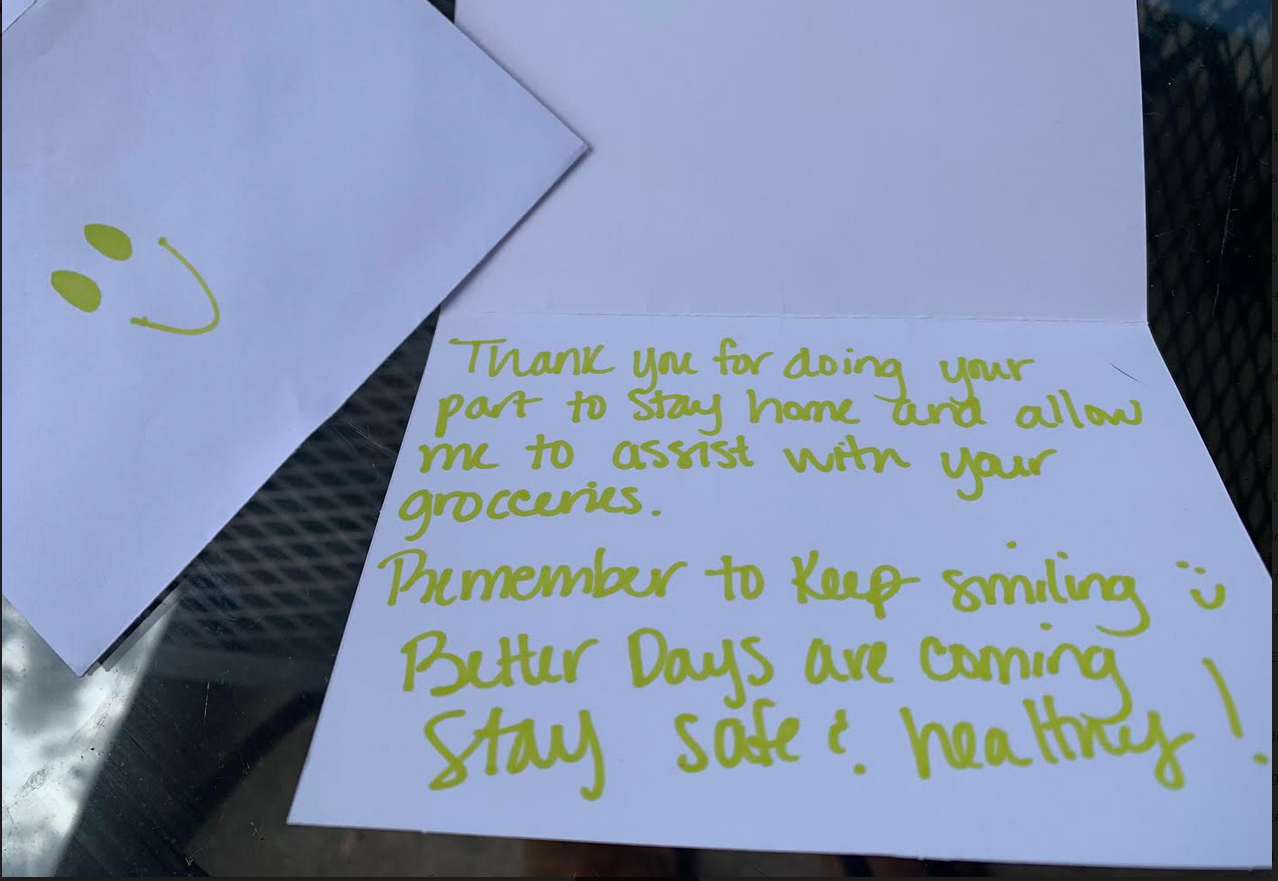 Thank you for doing your
part to stay home and allow
me to assist with your
groceries.
Remember to Keep smiling ü
Better Days are coming
Stay safe & healthy!